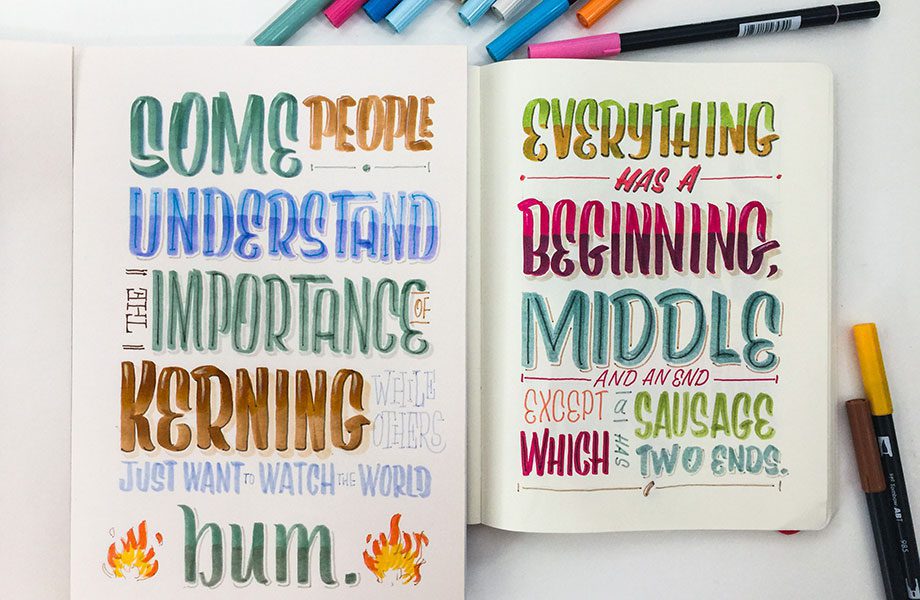 SOME PEOPLE
UNDERSTAND
THE IMPORTANCE OF
KERNING WHILE OTHERS
JUST WANT TO WATCH THE WORLD
bum.
EVERYTHING
HAS A
BEGINNING,
MIDDLE
AND AN END
EXCEPT a SAUSAGE
WHICH HAS TWO ENDS.
ABT
985